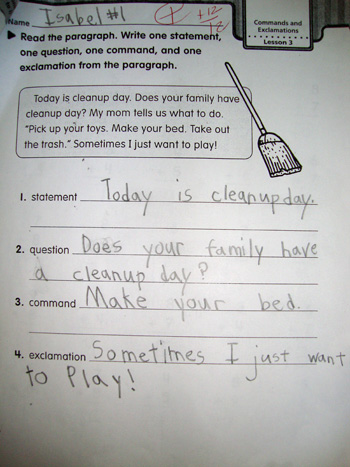 Name Isabel #1 + +12/12
Commands and
Exclamations
Lesson 3
▶ Read the paragraph. Write one statement,
one question, one command, and one
exclamation from the paragraph.
Today is cleanup day. Does your family have
cleanup day? My mom tells us what to do.
"Pick up your toys. Make your bed. Take out
the trash." Sometimes I just want to play!
1. statement Today is cleanup day.
2. question Does your family have
a cleanup day?
3. command Make your bed.
4. exclamation Sometimes I just want
to Play!